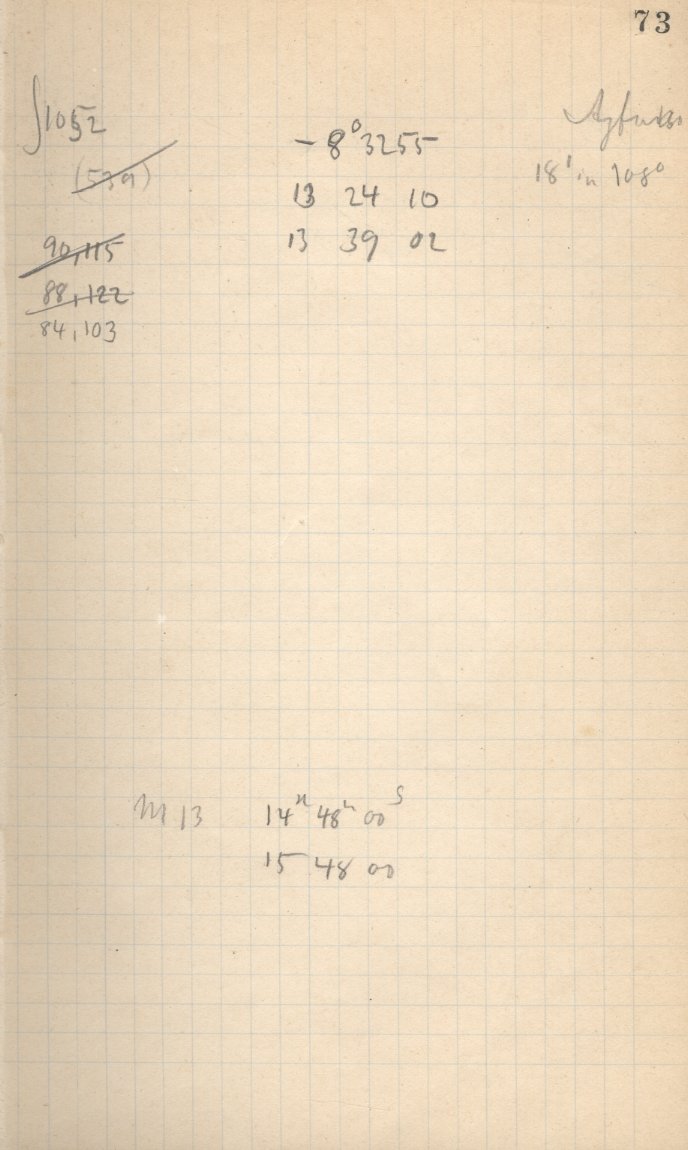 73
∫1052
(539)
90,115
88,122
84,103
- 8° 32 55
13 24 10
13 39 02
18' in 108°
M 13 14h 48m 00s
15 48 00